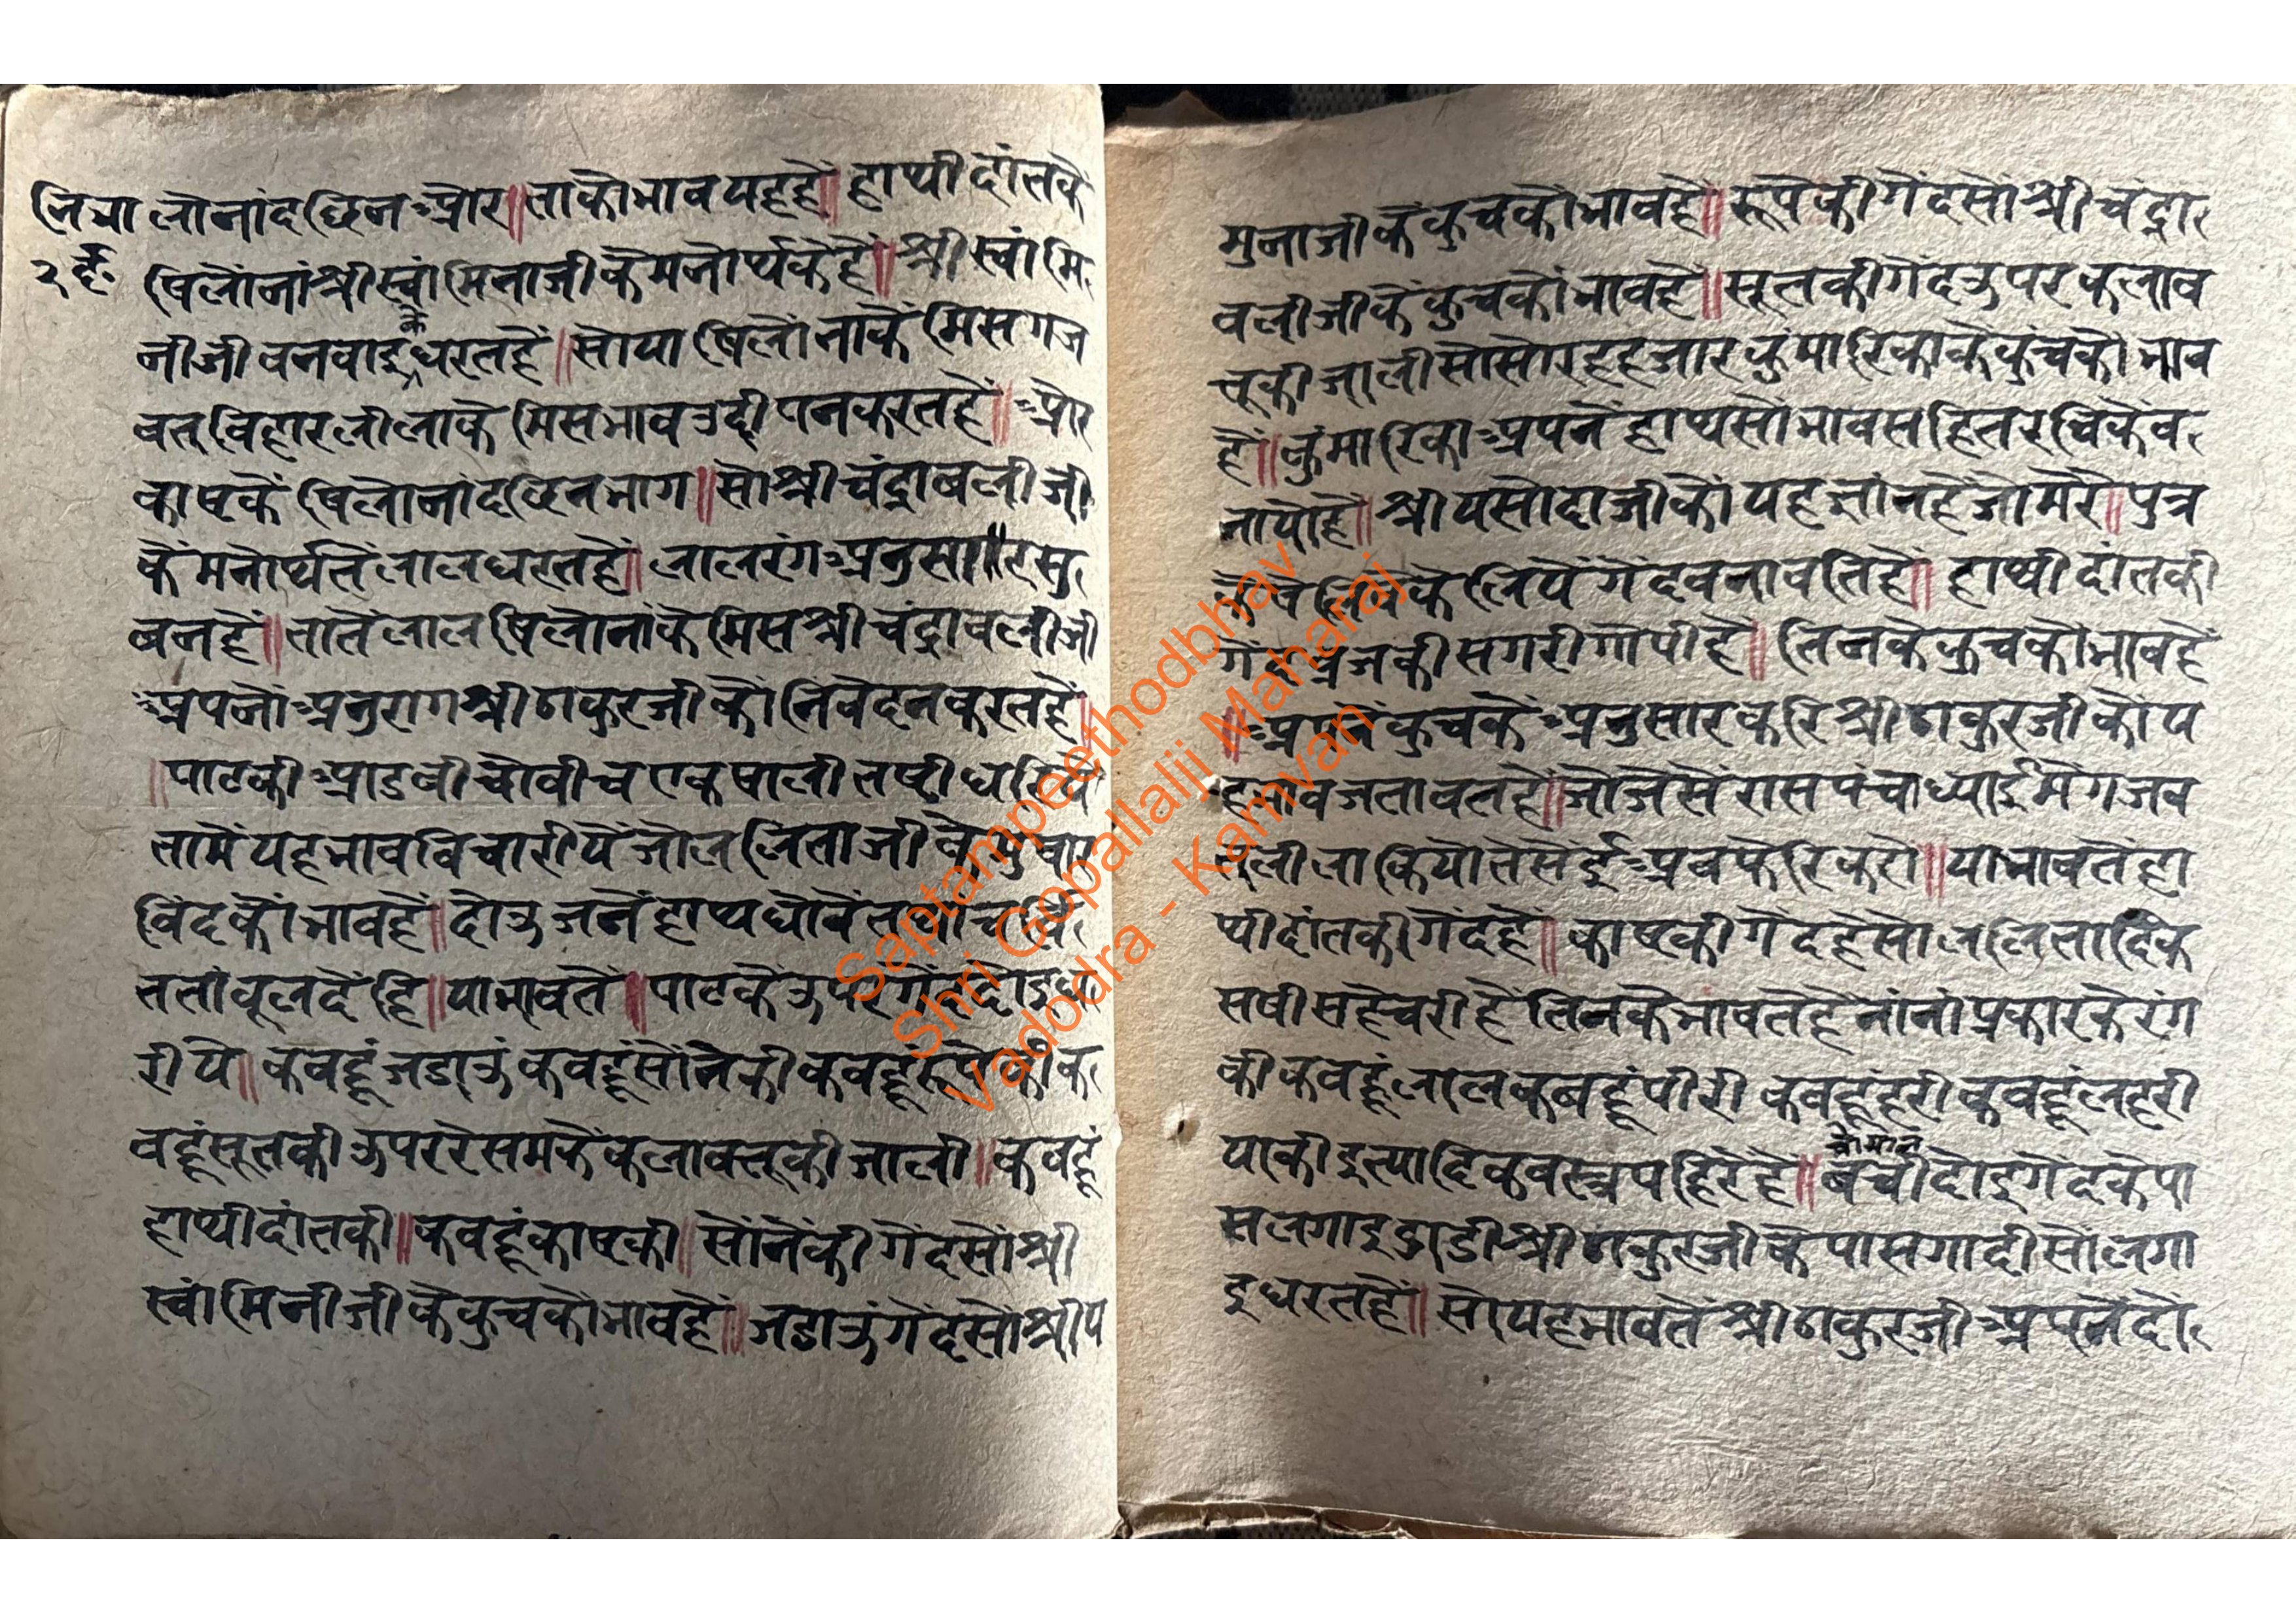 षिलौनां दछिन और॥ ताकौ भाव यह है॥ हाथी दांत कै
षिलौंनां श्री स्वांमिनाजी कै मनोर्थ के हैं॥ श्री स्वांमि
नीजी बनवाइ के धरत हैं॥ सो या षिलौंना कें मिस गज
वत् विहार लीला के मिस भाव उद्दीपन करत हैं॥ और
काष्ट कें षिलौनां दछिन भाग॥ सो श्री चंद्रावलीजी
कें मनोर्थ तें लाल धरत हैं॥ लाल रंग अनुसा॥र सु
बन हैं॥ तातें लाल षिलौनां कै मिस श्री चंद्रावलीजी
अपनों अनुराग श्री ठाकुरजी कों निवेदन करत हैं॥
॥पाट की आडबी चौवीच एक षाली तष्टी धरियै
तामें यह भाव विचारीयें जो ललिताजी के
विंद कौं भाव हैं॥ दोऊ जनें हाथ धोवें
त तांबूल दें हि॥ या भाव तें॥ पाट कें ऊपर गेंद दोइ ध
रीये॥ कबहूं जडाऊं कबहूं सोंने की कबहूं रूपे की क
बहूं सूत की ऊपर रेसम कें कलाबत्तू की जाली॥ कबहूं
हाथी दांत की॥ कबहूं काष्ट की॥ सोंनें की गेंद सों श्री
स्वांमिनीजी के कुच कौ भाव हैं॥ जडाऊं गेंद सों श्री य
मुनाजी कें कुच कौं भाव हैं॥ रूपे की गेंद सों श्री चंद्रा
वलीजी कें कुच कों भाव हैं॥ सूत की गेंद ऊपर कलाब
त्तू की जाली सो सोरह हजार कुंमारिका के कुंच कौ भाव
हैं॥ कुंमारिका अपनें हाथ सों भाव सहित रचिकें ब
नायो है॥ श्री यसोदाजी कों यह ज्ञांन है जो मेरौ॥ पुत्र
खेलिवे के लियें गेंद बनावति है॥ हाथी दांत की
गेंद ब्रज की सगरी गोपी हैं॥ तिनके कुच कौ भाव हैं
॥अपनें कुच कें अनुसार करि श्री ठाकुरजी कों य
ह भाव जतावत हैं॥ जो जैसें रास पंचाध्याई में गज व
त् लीला कियो तैसेंई अब फेरि करो॥ या भाव तें हा
थी दांत की गेंद हैं॥ काष्ट की गेंद है सो ललितादिक
सषी सहैचरी हैं तिनके भाव तें हैं नांनां प्रकार के रंग
की कबहूं लाल कबहूं पीरी कबहूं हरी कबहूं लहरी
या की इत्यादिक वस्त्र पहिरें है॥ दोइ गेंद के पा
स लगाइ ठाडी श्री ठाकुरजी के पास गादी सों लगा
इ धरत हैं॥ सो यह भाव तें श्री ठाकुरजी अपनें दो